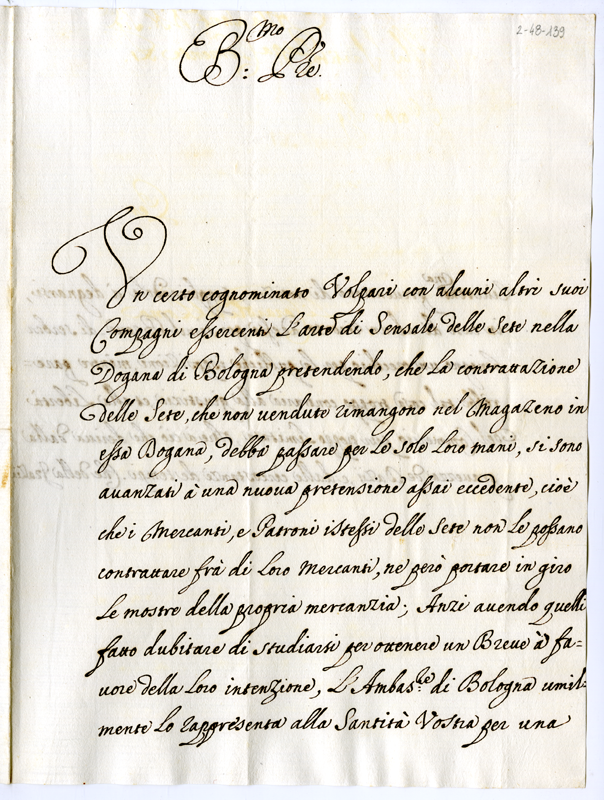 2-48-139
B:mo Pre.
Un certo cognominato Volpari con alcuni altri suoi
Compagni essercenti L'arte di Sensale delle Sete nella
Dogana di Bologna pretendendo, che La contrattazione
delle Sete, che non vendute rimangono nel Magazeno in
essa Dogana, debba passare per Le sole Loro mani, si sono
avanzati à una nuova pretensione assai eccedente, cioè
che i Mercanti, e Patroni istessi delle Sete non Le possano
contrattare frà di Loro Mercanti, ne però portare in giro
Le mostre della propria mercanzia; Anzi avendo quelli
fatto dubitare di studiarsi per ottenere un Breve à fa=
vore della Loro intenzione, L'Ambas:re di Bologna umil-
mente Lo rappresenta alla Santità Vostra per una